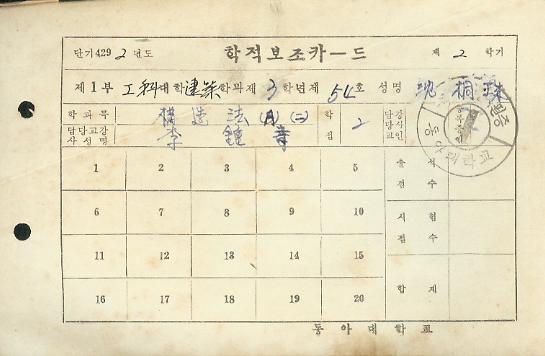 단기 4292년도 학적보조카ー드 제 2 학기
제 1 부 工科대학 建築 학과 제 3 학년 제 54 호 성명 沈桐
학과목 構造法 (月)(二) 학점 2 담당교강사인
담당교강사성명 李鍾
1 2 3 4 5 출석점수
6 7 8 9 10 시험점수
11 12 13 14 15
16 17 18 19 20 합계
동아대학교